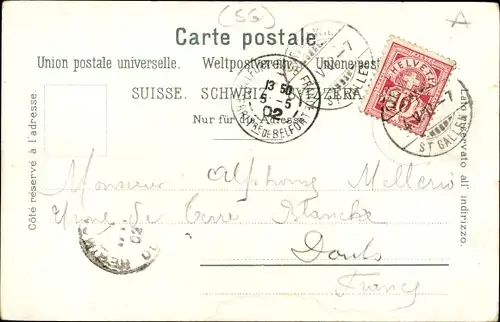 (SG)
A
Carte postale.
Union postale universelle. Weltpostverein. Unione post
SUISSE. SCHWEIZ. SVIZZERA.
Nur für die Adresse
Côté réservé à l'adresse.
Lato riservato all' indirizzo.
HELVETIA
10
ST GALLEN
V.02.-7
ST GALLEN
13 50
5-5
02
BELFORT
02
Monsieur Alphons Mellerio
de Terre Blanche
Doubs
France